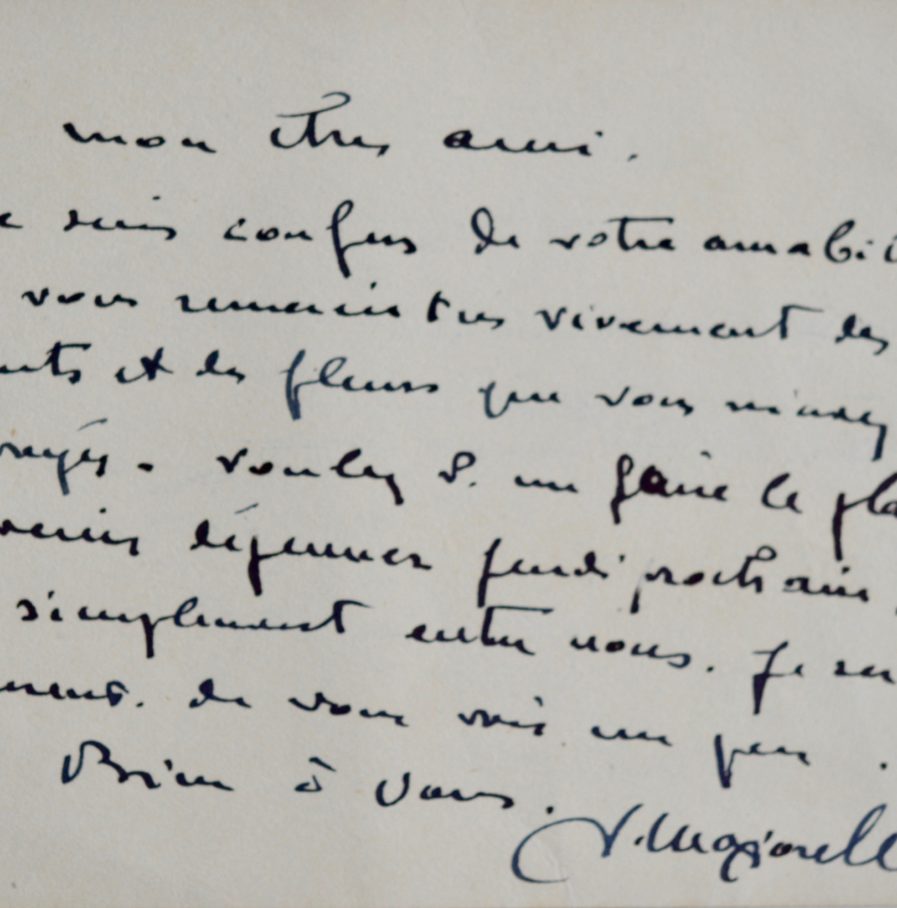 mon cher ami.
suis confus de votre amabi
vous remercie très vivement des
et des fleurs que vous m'avez
voulez V. me faire le pla
venir déjeuner jeudi prochain
simplement entre nous. Je se
de vous voir un peu.
Bien à vous.
J. Majorell